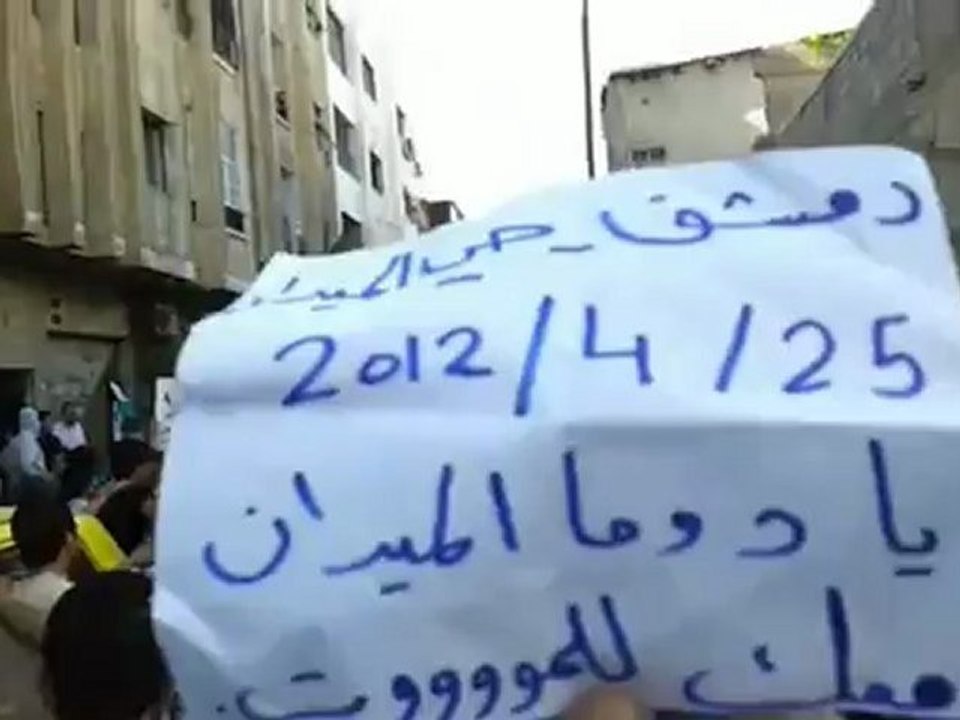 دمشق - حي الميدان
2012/4/25
يا دوما الميدان
معك للمووووت